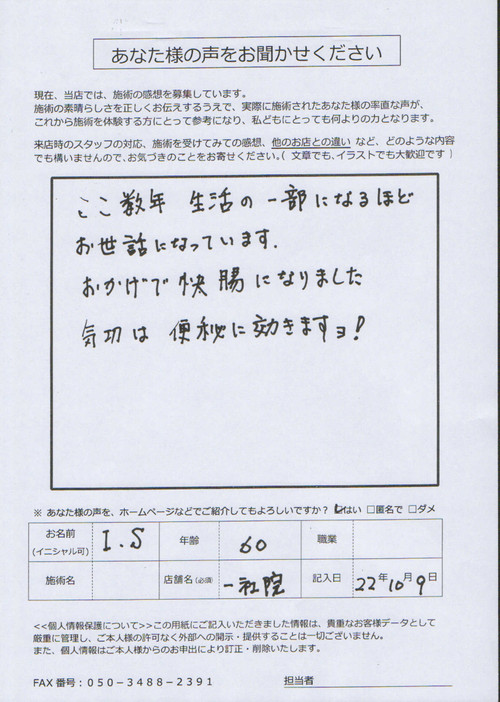 あなた様の声をお聞かせください
現在、当店では、施術の感想を募集しています。
施術の素晴らしさを正しくお伝えするうえで、実際に施術されたあなた様の率直な声が、
これから施術を体験する方にとって参考になり、私どもにとっても何よりの力となります。
来店時のスタッフの対応、施術を受けてみての感想、他のお店との違い など、どのような内容
でも構いませんので、お気づきのことをお寄せください。( 文章でも、イラストでも大歓迎です )
ここ数年 生活の一部になるほど
お世話になっています.
おかげで快腸になりました
気功は 便秘に効きますョ!
※ あなた様の声を、ホームページなどでご紹介してもよろしいですか? ☑はい □匿名で □ダメ
お名前 (イニシャル可) I.S 年齢 60 職業
施術名 店舗名(必須) 一社院 記入日 22年10月9日
<<個人情報保護について>>この用紙にご記入いただきました情報は、貴重なお客様データとして
厳重に管理し、ご本人様の許可なく外部への開示・提供することは一切ございません。
また、個人情報はご本人様からのお申出により訂正・削除いたします。
FAX 番号:050-3488-2391 担当者